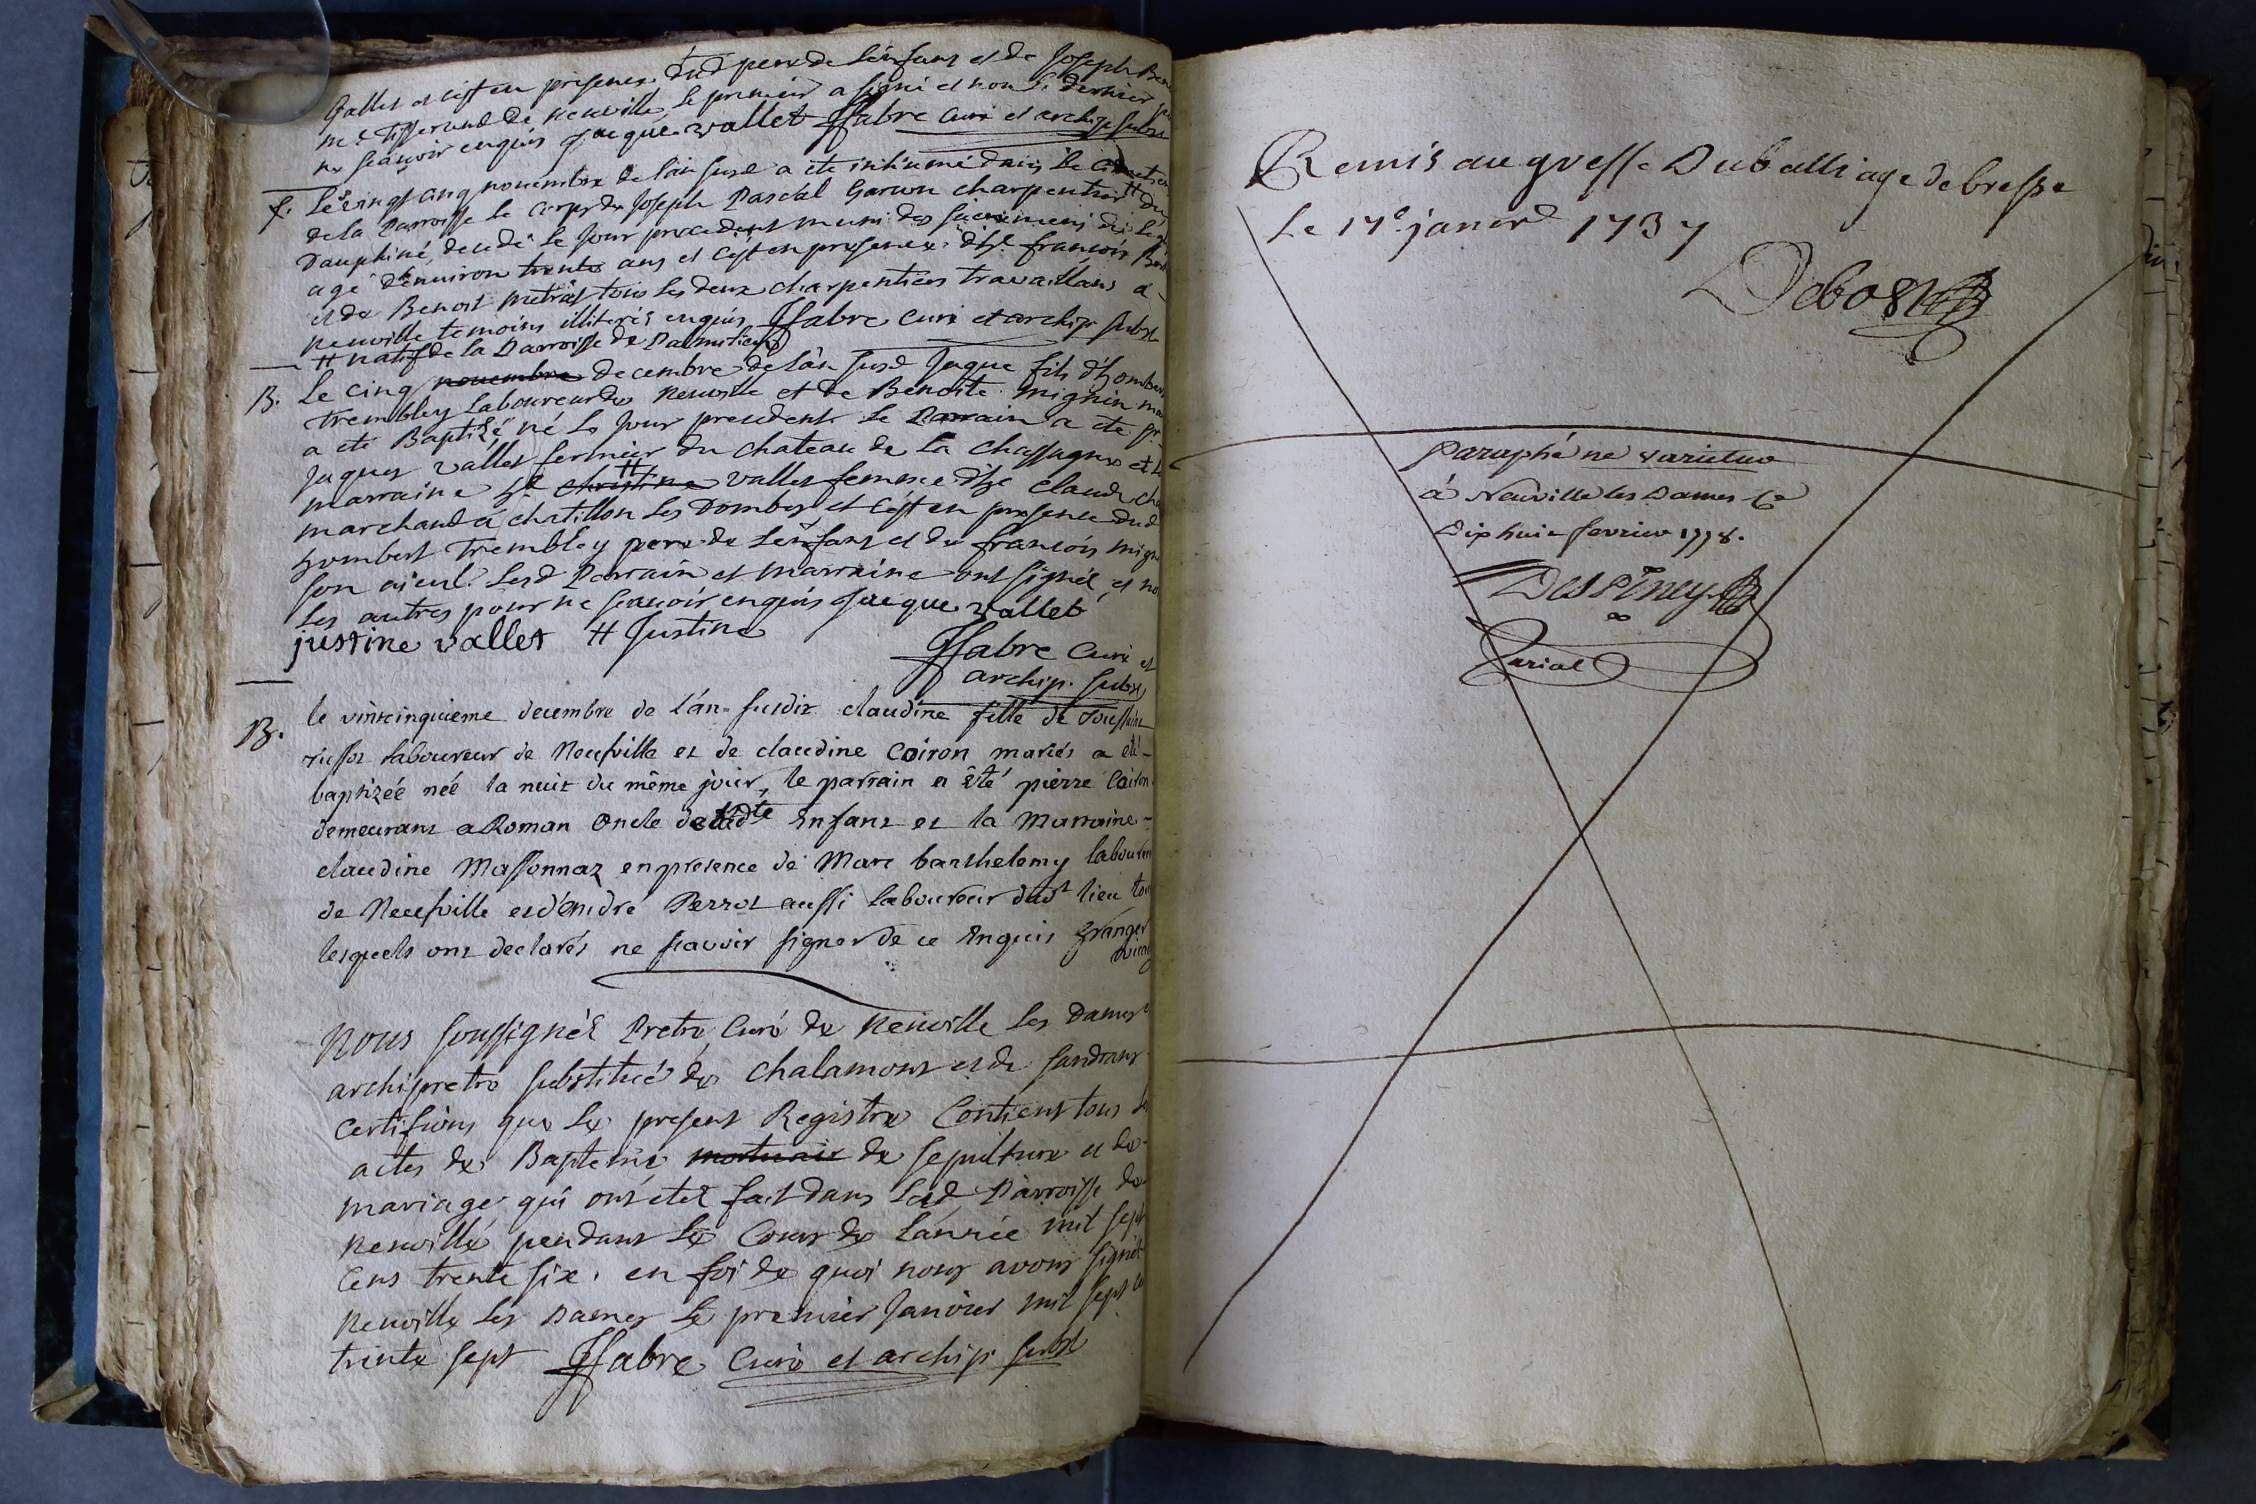 vallet et c'est en presence dud pere de l'enfant et de Joseph
tisserand de neuville le premier a signé et non le dernier
ne scavoir enquis Jacque vallet ffabre curé et archip subst
S. Le vingt cinq novembre de l'an susd a eté inhumé dans le
de la Parroisse le corps de Joseph Pascal charpentier #
Dauphiné, decedé le jour precedent muni des sacremens
agé d'environ trente ans et c'est en presence d'h.e francois
et de Benoit tous les deux charpentiers travaillans a
neuville temoins illiterés enquis ffabre curé et archip subst
# natif de la Parroisse de
B. Le cinq novembre decembre de l'an susd Jaque fils d'hombert
Trembley laboureur de neuville et de Benoite mignin
a eté Baptisé né le jour precedent le Parrain a eté
Jaques vallet fermier du chateau de la chassagne et la
marraine h.e christine # vallet femme d'h.e claude
marchand a chatillon les Dombes et c'est en presence dud
hombert Trembley pere de l'enfant et de francois
son aieul. Lesd Parrain et marraine ont signé, et non
les autres pour ne scavoir enquis Jacque vallet
justine vallet # Justine
ffabre curé et
archip. subst
B. le vintcinquieme decembre de l'an susdit claudine fille de Toussaint
ruffot laboureur de Neufville et de claudine Coiron mariés a eté
baptizée née la nuit du même jour, le parrain a êté pierre Coiron
demeurant a Roman oncle de ladte Enfant et la Marraine
claudine Massonnaz en presence de Marc barthelemy laboureur
de Neufville et d'endré Perrot aussi laboureur dudt lieu
lesquels ont declarés ne scavoir signer de ce Enquis Granger
vicaire
Nous soussignéz Pretre Curé de Neuville les Dames
archipretre substitué de chalamont et de sandrans
certifions que le present Registre Contient tous les
actes de Bapteme mortuair de sepulture et de
mariage qui ont etez fait dans lad Parroisse de
neuville pendant le Cours de l'année mil sept
cens trente six. en foi de quoi nous avons signé
neuville les Dames le premier Janvier mil sept
trente sept ffabre Curé et archip subst
Remis au greffe Du balliage de bresse
Le 17e janvr 1737
Paraphé ne varietur
á Neuville les Dames le
Dixhuit fevrier 1778.
Despiney